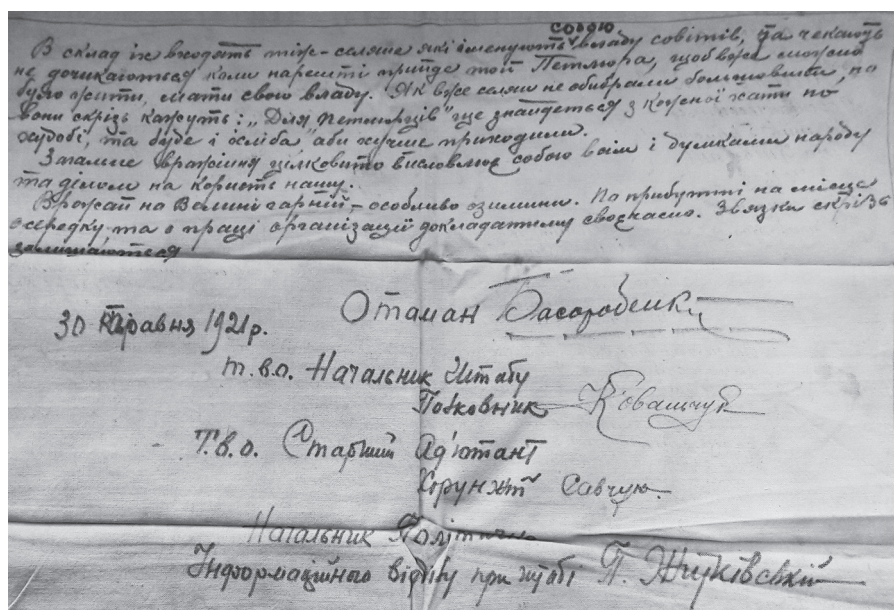 собою
В склад їх входять тіж-селяне які іменують владу совітів, та чекають
не дочикаються коли нарешті прийде той Петлюра, щоб вже можно
було жити, мати свою владу. Як вже селян не обибрали большовики, но
вони скрізь кажуть: „Для петлюрців" ще знайдеться з кожної хати по
худобі, та буде і хліба, аби хутше приходили.
Загальне вражіння цілковито висловлює собою волі і думками народу
та ділом на користь нашу.
Врожай на Волині гарний, – особливо озимини. По прибутті на місце
осередку та о праці організації докладатиму своєчасно. Звязки скрізь
залишаються
Отаман Басоробенко
30 Травня 1921 р.
т.в.о. Начальник Штабу
Полковник Ковальчук
Т.в.о. Старший Ад'ютант
Хорунжий Савчук
Начальник Політично
Інформаційного відділу при штабі П. Жуківській